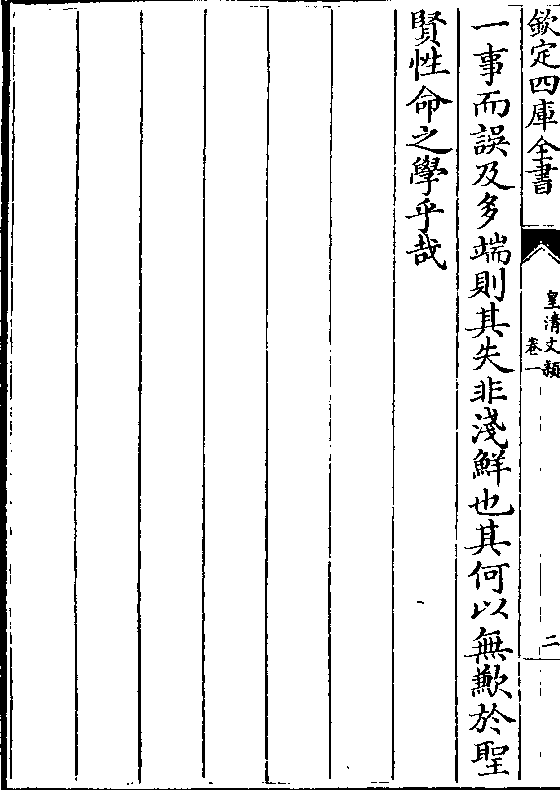 欽定四庫全書
皇清文穎
卷一
二
一事而誤及多端則其失非淺鮮也其何以無歉於聖
賢性命之學乎哉